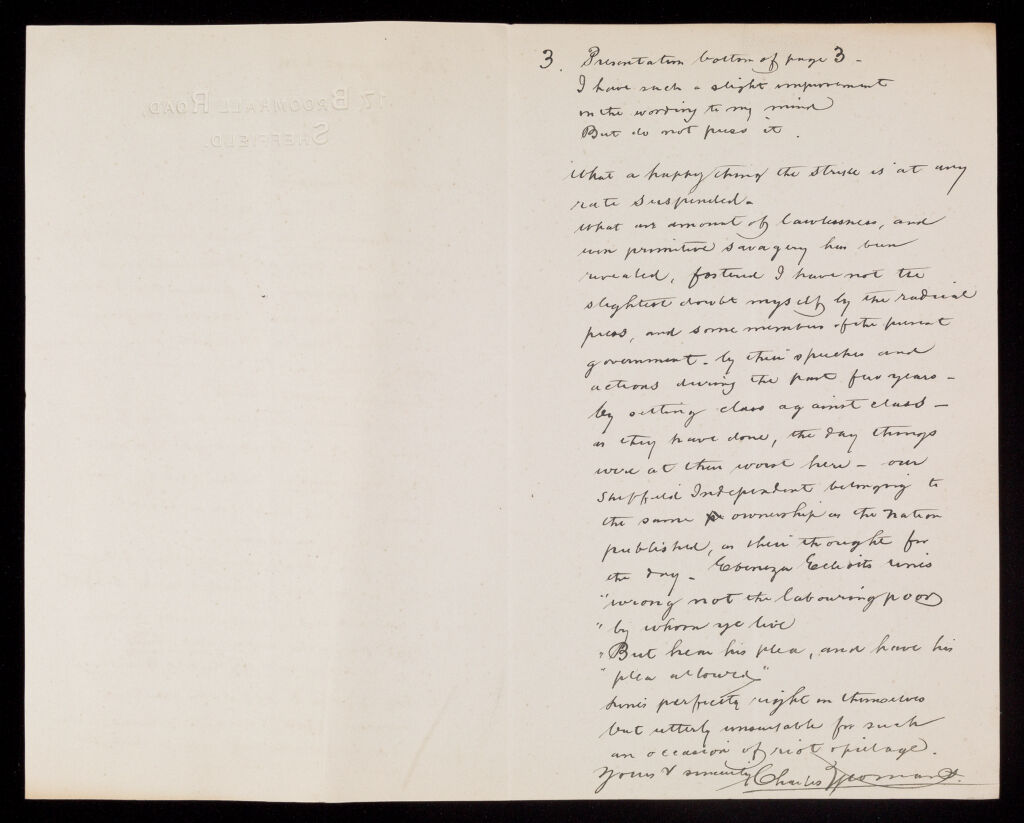 17 BROOMHALL ROAD,
SHEFFIELD.
3. Presentation bottom of page 3 -
I have such a slight improvement
in the wording to my mind
But do not press it.
What a happy thing the strike is at any
rate suspended -
What an amount of lawlessness, and
even primitive savagery has been
revealed, fostered I have not the
slightest doubt myself by the radical
press, and some members of the present
government - by their speeches and
actions during the past few years -
by setting class against class -
as they have done, the day things
were at their worst here - our
Sheffield Independent belonging to
the same ownership as the Nation
published, as their thought for
the day - Ebenezer Elliotts lines
"wrong not the labouring poor
" by whom ye live
" But hear his plea, and have his
" plea allowed"
Lines perfectly right in themselves
but utterly unsuitable for such
an occasion of riot & pillage.
Yours v sincerely Charles